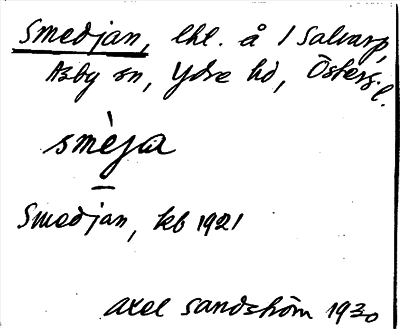 Smedjan, lhl. å / Salvarp,
Asby sn, Ydre hd, Österg. l.
smèja
Smedjan, kb 1921
Axel Sandström 1930